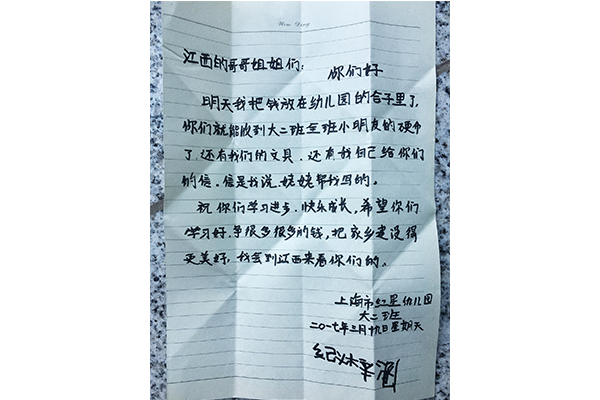 江西的哥哥姐姐们:
你们好
明天我把钱放在幼儿园的合子里了,
你们就能收到大二班全班小朋友的硬币
了.还有我们的文具.还有我自己给你们
的信.信是我说.姥姥帮我写的。
祝你们学习进步.快乐成长,希望你们
学习好.争很多很多的钱,把家乡建设得
更美好,我会到江西来看你们的。
上海市红星幼儿园
大二班
二〇一七年三月十九日星期天